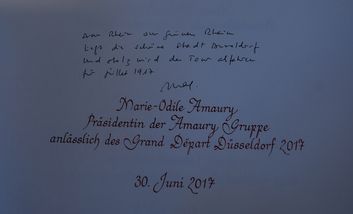 am Rhein am grünen Rhein
liegt die schöne Stadt Düsseldorf
und stolz wird der Tour
für Juillet 1917
Marie-Odile Amaury,
Präsidentin der Amaury Gruppe
anlässlich des Grand Départ Düsseldorf 2017
30. Juni 2017